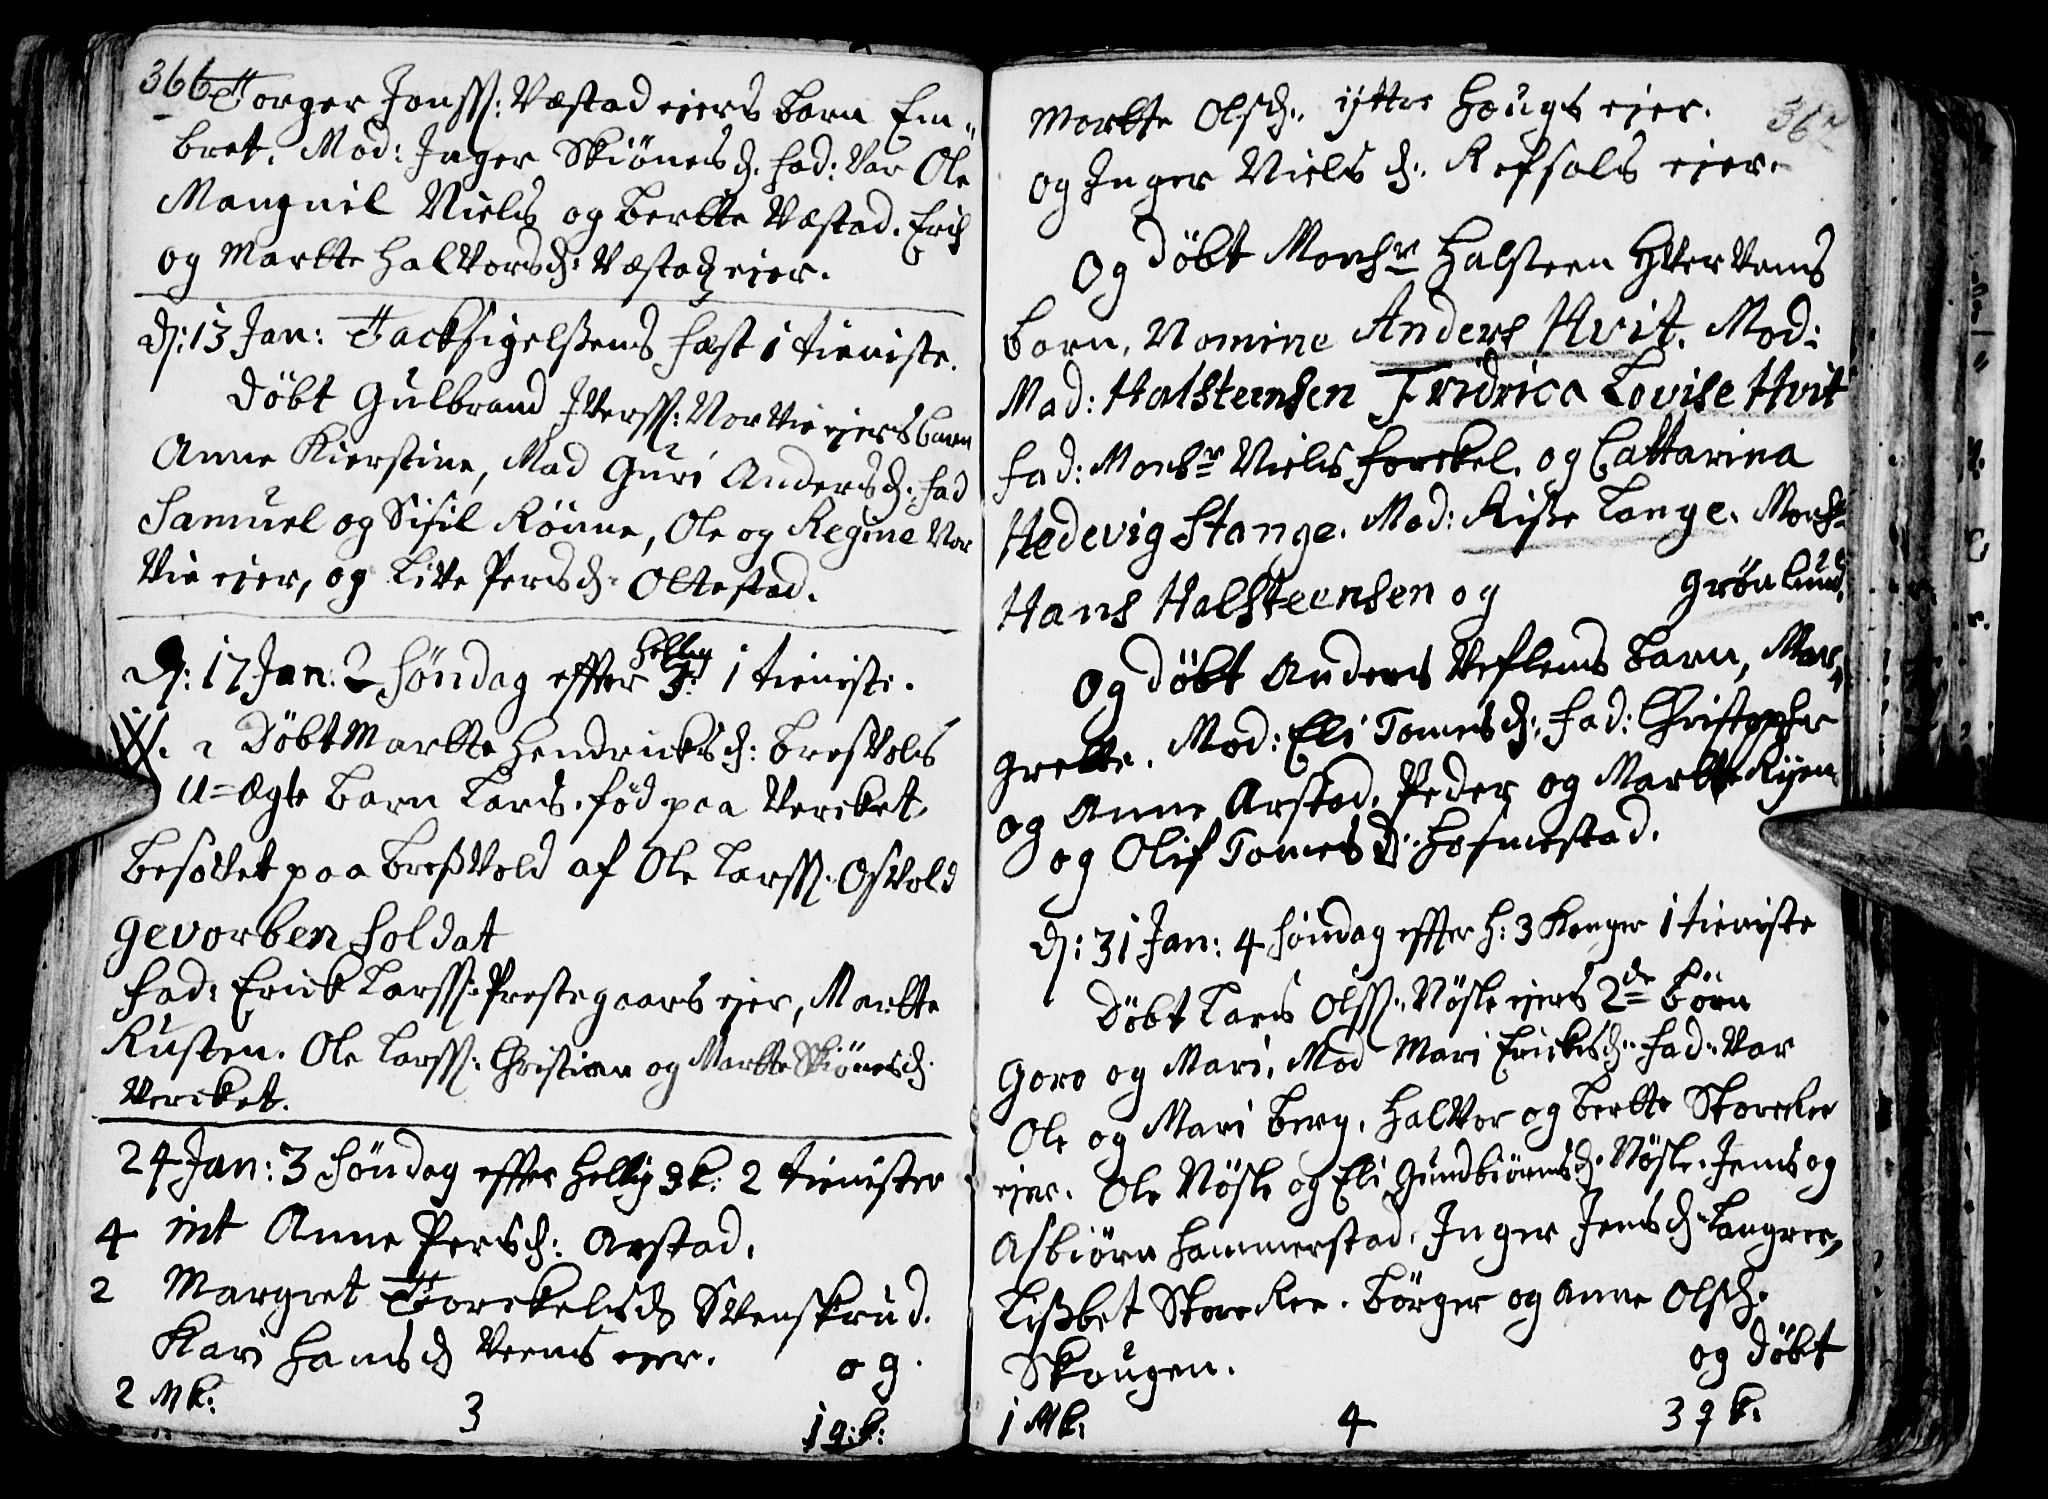 366 Torger Jonss: Væstad ejers barn Em„
bret. Mod: Inger Skiönesd. fad: Var Ole
Mangnil Niels og Bertte Væstad. Erich
og Martte Halvorsd: Væstad ejer.
D: 13 Jan: Tacksigelssens fæst 1 tieniste.
Döbt Gulbrand Iverss: Norvie ejers barn
Anne Kierstine, Mod Guri Andersd: fad
Samuel og Sisil Rönne, Ole og Regine Nor
vie ejer, og Live Persd: Oltestad.
D: 17 Jan: 2 Söndag effter hellig 3 1 tieniste.
Döbt Martte Hendricksd: Bresvols
U=Ægte barn Lars. föd paa Vercket,
besovet paa Bressvold af Ole Larss: Osvold
gevorben soldat
fad: Erick Larss: Prestegaars ejer, Martte
Rusten. Ole Larss: Christian og Martte Skiönesd.
Vercket.
24 Jan: 3 Söndag effter hellig 3 k: 2 tienister
4 int Anne Persd: Arstad.
2 Margret Torckelsd Svenskrud.
Kari Hansd Veens ejer. og
2 Mk: 3 1 q: k:
Martte Olsd. yttre Haugs ejer.
og Inger Nielsd. Refsals ejer.
Og Döbt Monsr Halsteen
barn, Nomine Anders Hvit. Mod:
Mad: Halsteensen Fridrica Lovise Hvit
fad: Monsr Niels Forckel. og Cattarina
Hedevig Stange. Mad: Risse Lange. Monsr
Hans Halsteensen og Grönlund.
Og Döbt Anders Veflens barn, Mar„
grette. Mod: Eli Tomesd: fad: Christopher
og Anne Arstad. Peder og Martte Ryen
og Olif Tomesd: Hofmestad.
D: 31 Jan: 4 Söndag effter h: 3 Konger 1 tieniste
Döbt Lars Olss: Nösle ejers 2de börn
Goro og Mari. Mod Mari Ericksd: fad: Var
Ole og Mari Berg. Halvor og Bertte Storeker
ejer. Ole Nösle og Eli Gundbiörnsd. Nösle. Jens og
Asbiörn Hammerstad. Inger Jensd: Langree,
Lissbet Storeker. Börger og Anne Olsd.
Skougen. og Döbt
1 Mk: 4 3 q k: